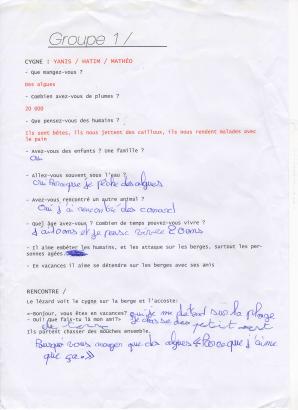 Groupe 1/
CYGNE : YANIS / HATIM / MATHÉO
- Que mangez-vous ?
Des algues
- Combien avez-vous de plumes ?
20 000
- Que pensez-vous des humains ?
Ils sont bêtes, ils nous jettent des cailloux, ils nous rendent malades avec
le pain
- Avez-vous des enfants ? Une famille ?
oui
- Allez-vous souvent sous l'eau ?
oui lorsque je pêche des algues
- Avez-vous rencontré un autre animal ?
Oui j'ai rencontré des canard
- Quel âge avez-vous ? combien de temps pouvez-vous vivre ?
J'ai 10 ans et je pense vivre 20 ans
- Il aime embêter les humains, et les attaque sur les berges, surtout les per-
sonnes agées
- En vacances il aime se détendre sur les berges avec ses amis
RENCONTRE /
Le lézard voit le cygne sur la berge et l'accoste:
«-Bonjour, vous êtes en vacances? oui je me détend sur la plage
- Oui! Que fais-tu là mon ami?» je chasse des petit
Ils partent chasser des mouches ensemble.
Pourquoi vous manger que des algues parce que j'aime
que ça »